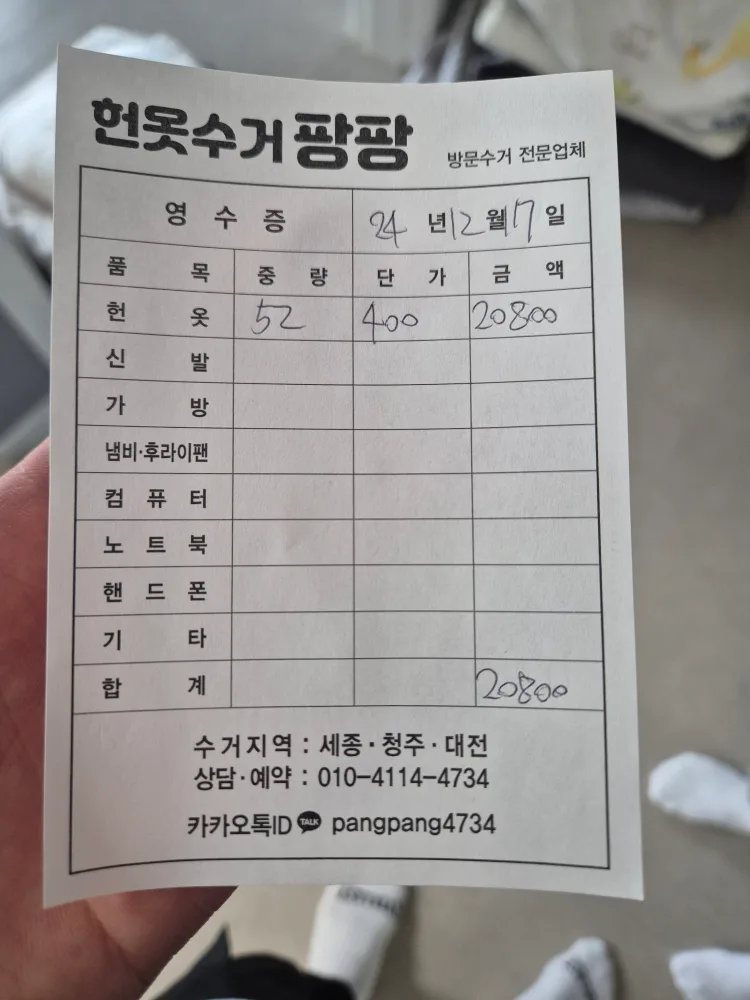 헌옷수거 팡팡 방문수거 전문업체
영 수 증 24 년 12 월 17 일
품 목 중 량 단 가 금 액
헌 옷 52 400 20800
신 발
가 방
냄비·후라이팬
컴 퓨 터
노 트 북
핸 드 폰
기 타
합 계 20800
수거지역 : 세종·청주·대전
상담·예약 : 010-4114-4734
카카오톡ID TALK pangpang4734